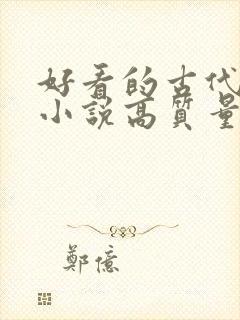 好看的古代
小説高質量
鄭億